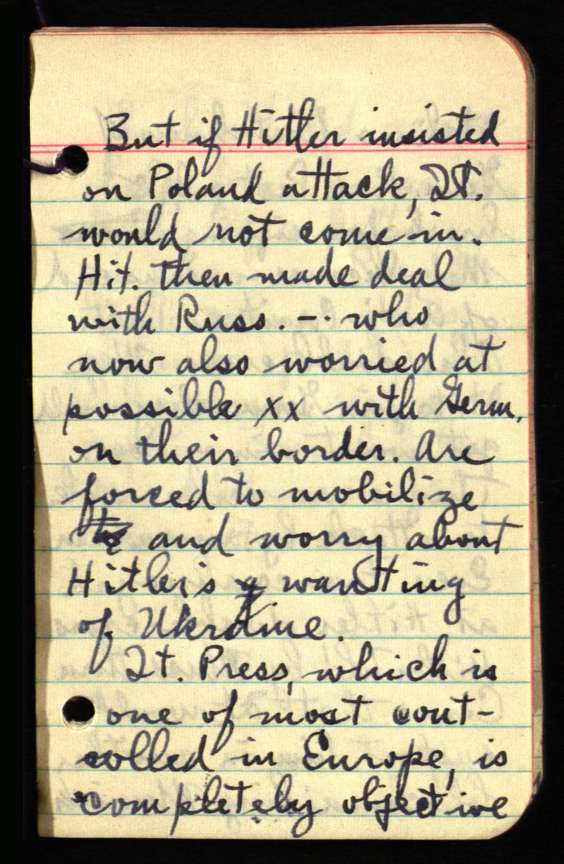 But if Hitler insisted
on Poland attack, It.
would not come in.
Hit. then made deal
with Russ. -. who
now also worried at
possible xx with Germ.
on their border. Are
forced to mobilize
and worry about
Hitler's wanting
of Ukraine.
It. Press, which is
one of most cont-
rolled in Europe, is
completely objective